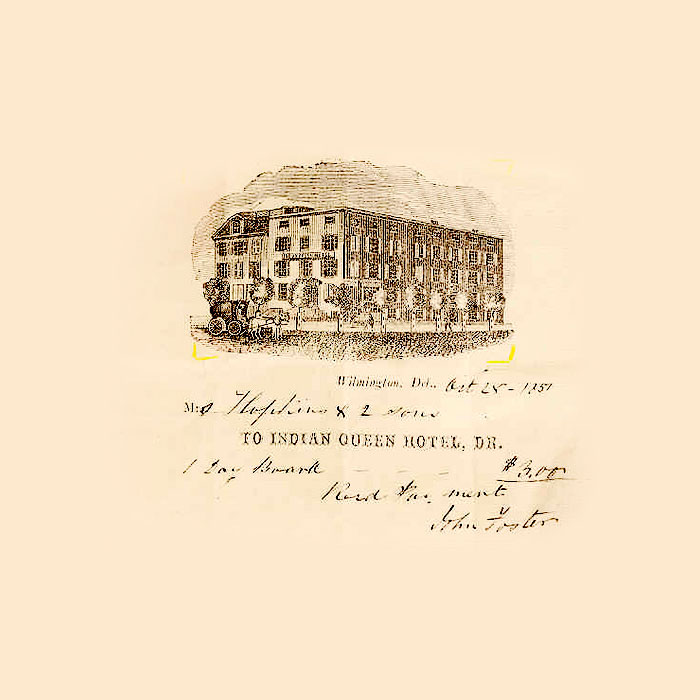 Wilmington, Del., Oct 28 - 1851
Mrs Hopkins & 2 sons
TO INDIAN QUEEN HOTEL, DR.
1 Day Board - - - - $3.00
Recd Payment
John Foster